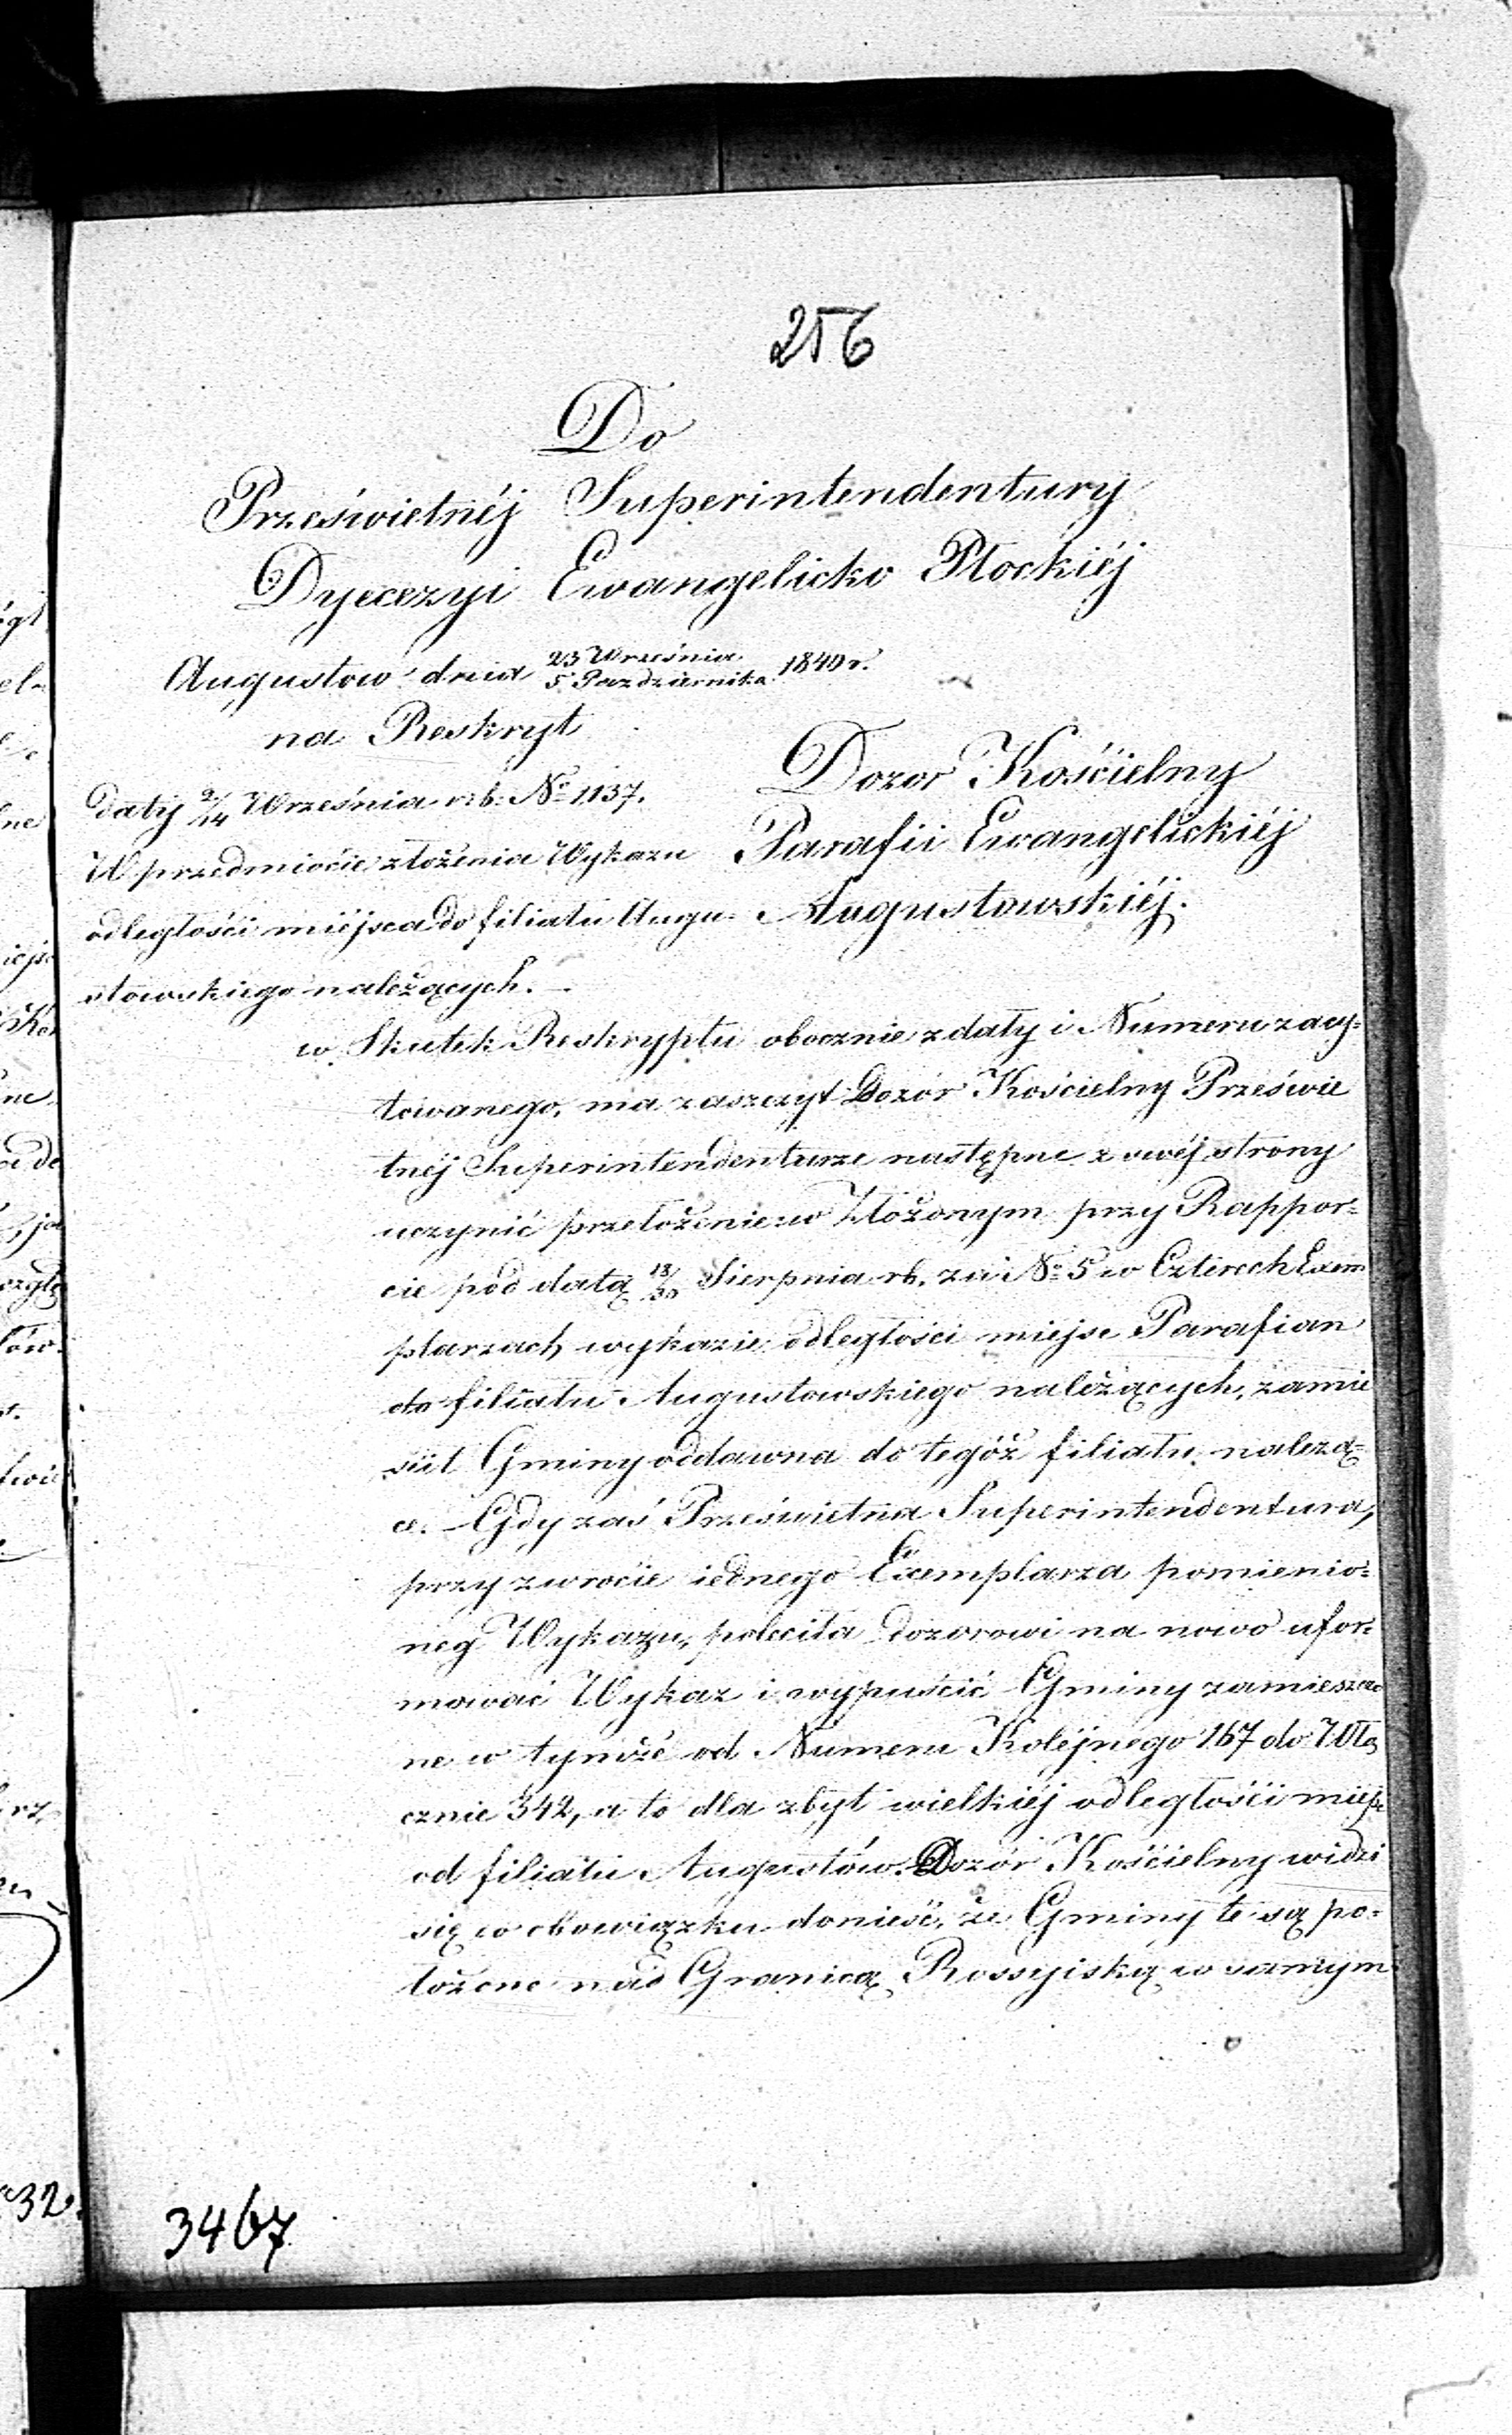 256
Do
Prześwietnéj Superintendentury
Dyecezyi Ewangelicko Płockiéj
Augustow dnia 23 Września / 5 Pazdziernika 1840 r.
na Reskrypt
daty 2/14 Września r: b: No 1137.
W przedmiocie złożenia Wykazu
odległości miéjsca do filiału Augu-
stowskiego należących. -
Dozor Kościelny
Parafii Ewangelickiéj
Augustowskiéj.
w Skutek Reskryptu obocznie z daty i Numeru zacy-
towanego, ma zaszczyt Dozór Kościelny Prześwie
tnéj Superintendenturze następne z swéj strony
uczynić przełożenie w Złożonym przy Rappor-
cie pod datą 18/30 Sierpnia rb. za No 5 w Czterech Exem
plarzach wykazie odległości miejsc Parafian
do filiału Augustowskiego należących, zamie
ścił Gminy oddawna do tegóż filiału należą-
ce. - Gdy zaś Prześwietna Superintendentura,
przy zwrocie iednego Exemplarza pomienio-
neg Wykazu, poleciła Dozorowi na nowo ufor-
mować Wykaz i wypuścić Gminy zamieszczo
ne w tymże od Numeru Kolejnego 167 do Włą
cznie 342, a to dla zbyt wielkiéj odległości miejsc
od filiału Augustów. Dozór Kościelny widzi
się w obowiązku donieść, że Gminy te są po-
łożone nad Granicą Rossyiską w samym
32.
3467